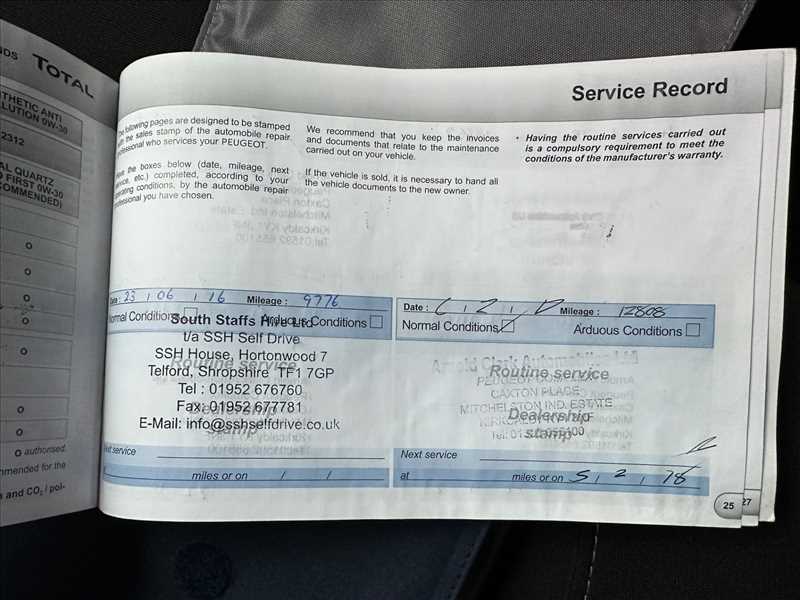 NDS TOTAL
THETIC ANTI
LLUTION 0W-30
2312
AL QUARTZ
FIRST 0W-30
COMMENDED)
o authorised.
mmended for the
s and CO₂ / pol-
Service Record
following pages are designed to be stamped
the sales stamp of the automobile repair
professional who services your PEUGEOT.
the boxes below (date, mileage, next
service, etc.) completed, according to your
operating conditions, by the automobile repair
professional you have chosen.
We recommend that you keep the invoices
and documents that relate to the maintenance
carried out on your vehicle.
If the vehicle is sold, it is necessary to hand all
the vehicle documents to the new owner.
• Having the routine services carried out
is a compulsory requirement to meet the
conditions of the manufacturer's warranty.
Date : 23 / 06 / 16 Mileage : 9776
Normal Conditions Arduous Conditions
South Staffs Ltd
t/a SSH Self Drive
SSH House, Hortonwood 7
Telford, Shropshire TF1 7GP
Tel : 01952 676760
Fax: 01952 677781
E-Mail: info@sshselfdrive.co.uk
Routine service
Dealership
stamp
Next service
miles or on / /
Date : Mileage : 12808
Normal Conditions Arduous Conditions
Routine service
CAXTON PLACE
MITCHELSTON IND. ESTATE
Dealership
stamp
Next service
at miles or on 5 / 2 / 18
25
27